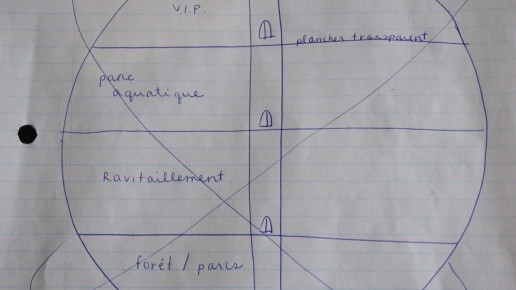 V.I.P.
plancher transparent
parc
aquatique
Ravitaillement
forêt / parcs